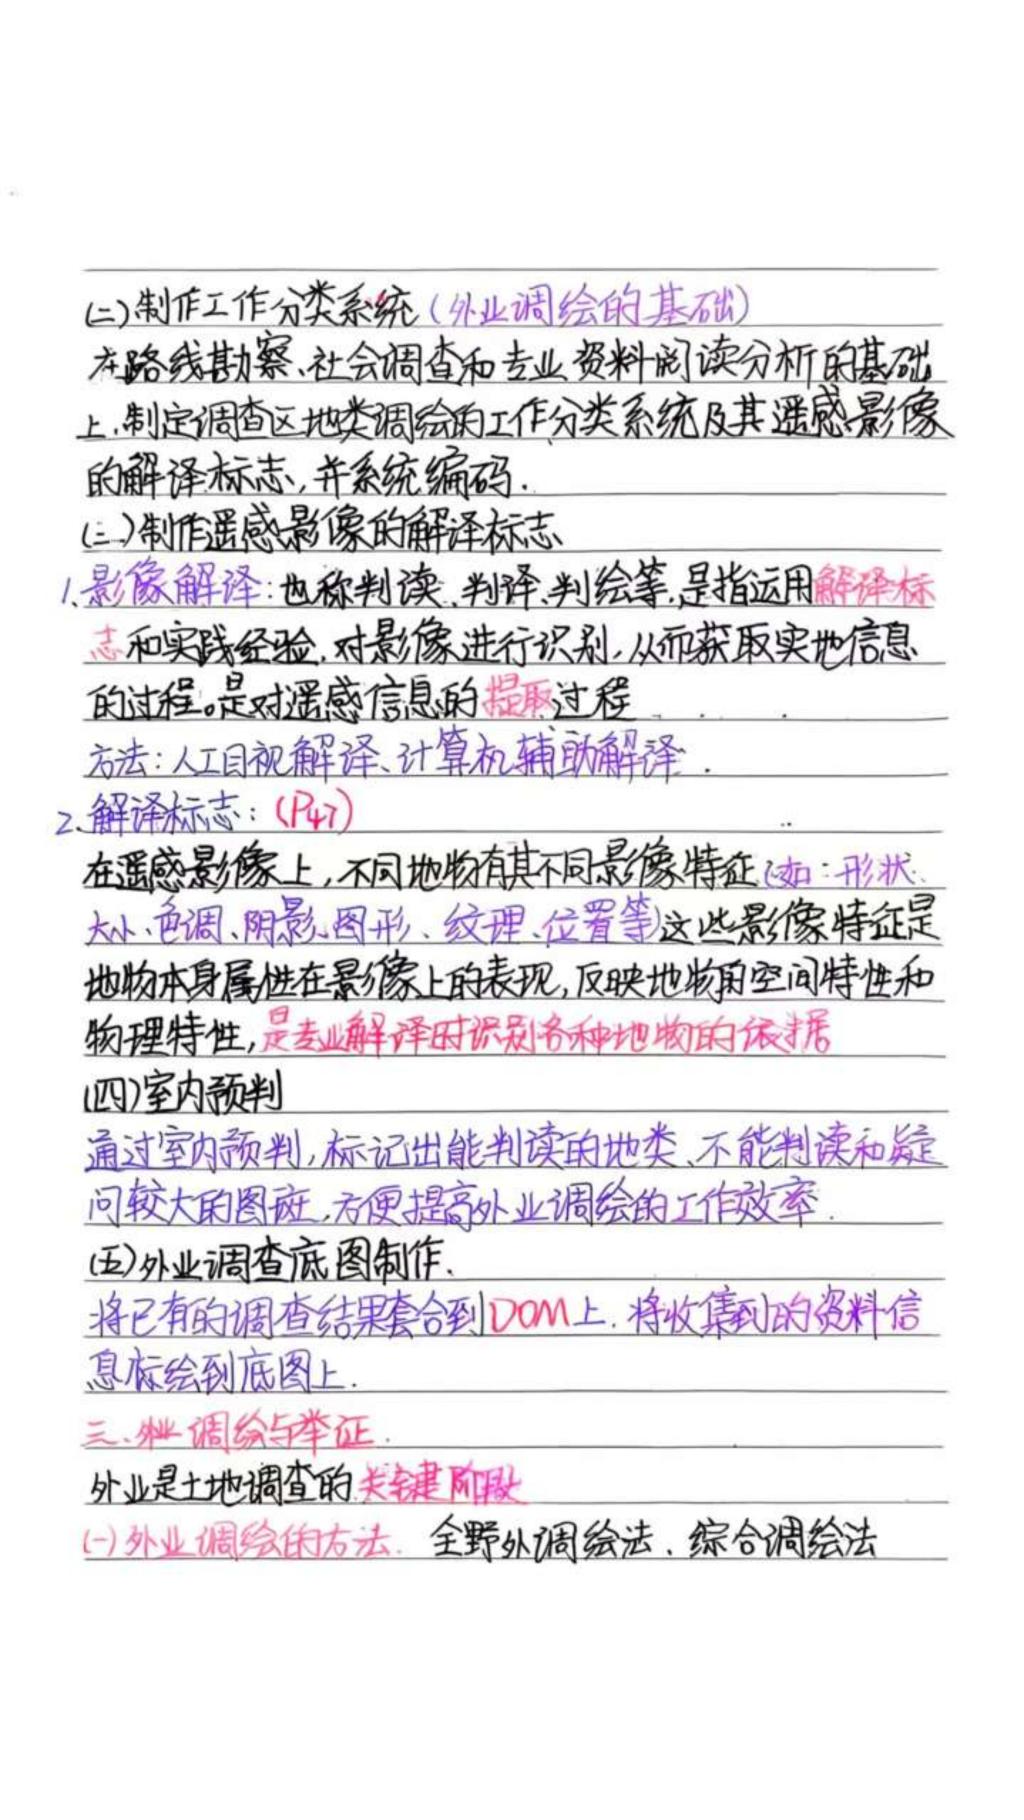 (二)制作工作分类系统(外业调绘的基础)
在路线勘察、社会调查和专业资料阅读分析的基础
上,制定调查区地类调绘的工作分类系统及其遥感影像
的解译标志,并系统编码.
(三)制作遥感影像的解译标志
1.影像解译:也称判读、判译、判绘等,是指运用解译标
志和实践经验,对影像进行识别,从而获取实地信息
的过程。是对遥感信息的提取过程
方法:人工目视解译、计算机辅助解译.
2.解译标志:(P47)
在遥感影像上,不同地物有其不同影像特征(如:形状、
大小、色调、阴影、图形、纹理、位置等)这些影像特征是
地物本身属性在影像上的表现,反映地物的空间特性和
物理特性,是专业解译时识别各种地物的依据
(四)室内预判
通过室内预判,标记出能判读的地类、不能判读和疑
问较大的图斑,方便提高外业调绘的工作效率.
(五)外业调查底图制作.
将已有的调查结果套合到DOM上.将收集到的资料信
息标绘到底图上.
三、外业调绘与举证.
外业是土地调查的关键阶段
(一)外业调绘的方法. 全野外调绘法、综合调绘法